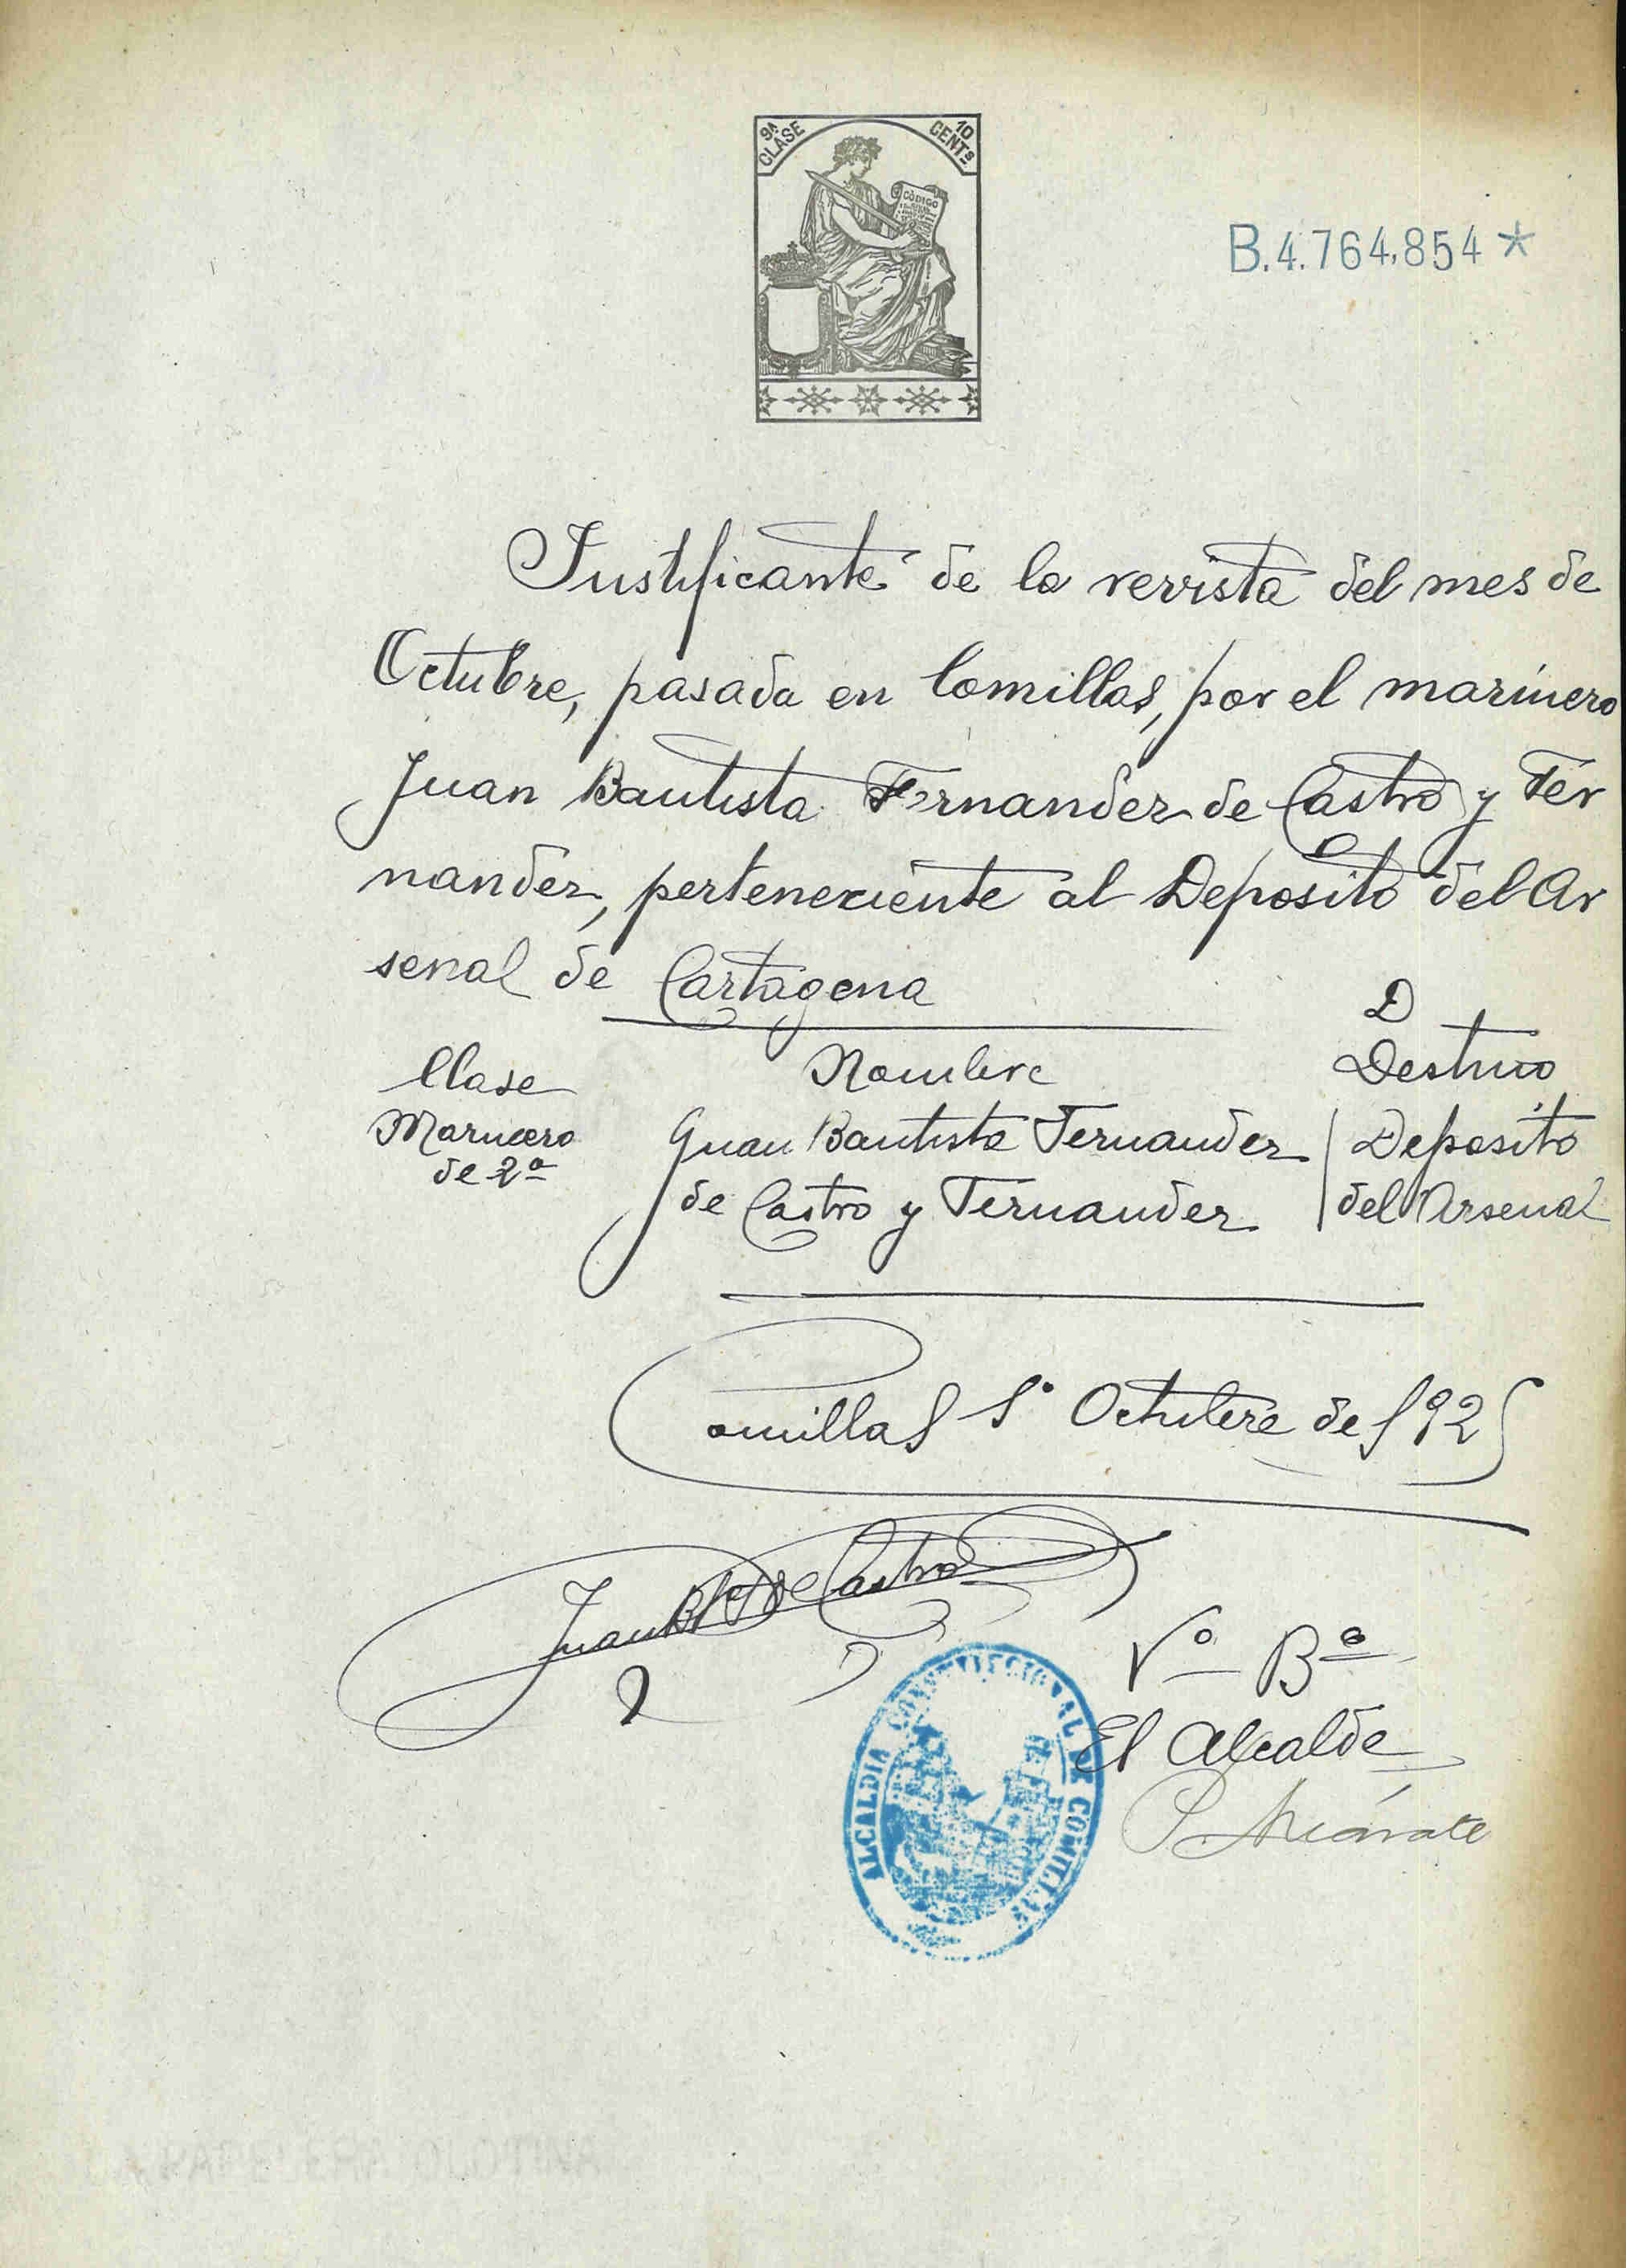 9A CLASE
10 CENTs
CÓDIGO
B.4.764.854*
Justificante de la revista del mes de
Octubre, pasada en Comillas, por el marinero
Juan Bautista Fernandez de Castro y Fer
nandez, perteneciente al Deposito del Ar
senal de Cartagena
D
Clase Nombre Destino
Marinero Juan Bautista Fernandez Deposito
de 2ª de Castro y Fernandez del Arsenal
Comillas 1º Octubre de 1925
Juan Bta F de Castro
Vº Bº
El Alcalde
ALCALDIA CONSTITUCIONAL DE COMILLAS
PAPELERA OLOTINA